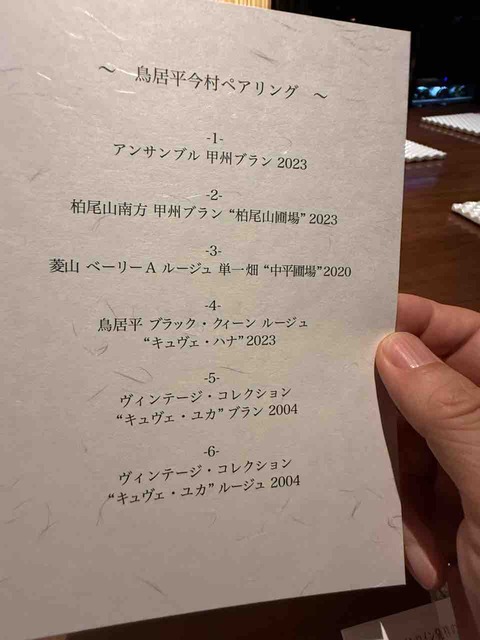 ～ 鳥居平今村ペアリング ～
-1-
アンサンブル 甲州ブラン 2023
-2-
柏尾山南方 甲州ブラン “柏尾山圃場” 2023
-3-
菱山 ベーリーA ルージュ 単一畑 “中平圃場”2020
-4-
鳥居平 ブラック・クィーン ルージュ
“キュヴェ・ハナ”2023
-5-
ヴィンテージ・コレクション
“キュヴェ・ユカ” ブラン 2004
-6-
ヴィンテージ・コレクション
“キュヴェ・ユカ” ルージュ 2004